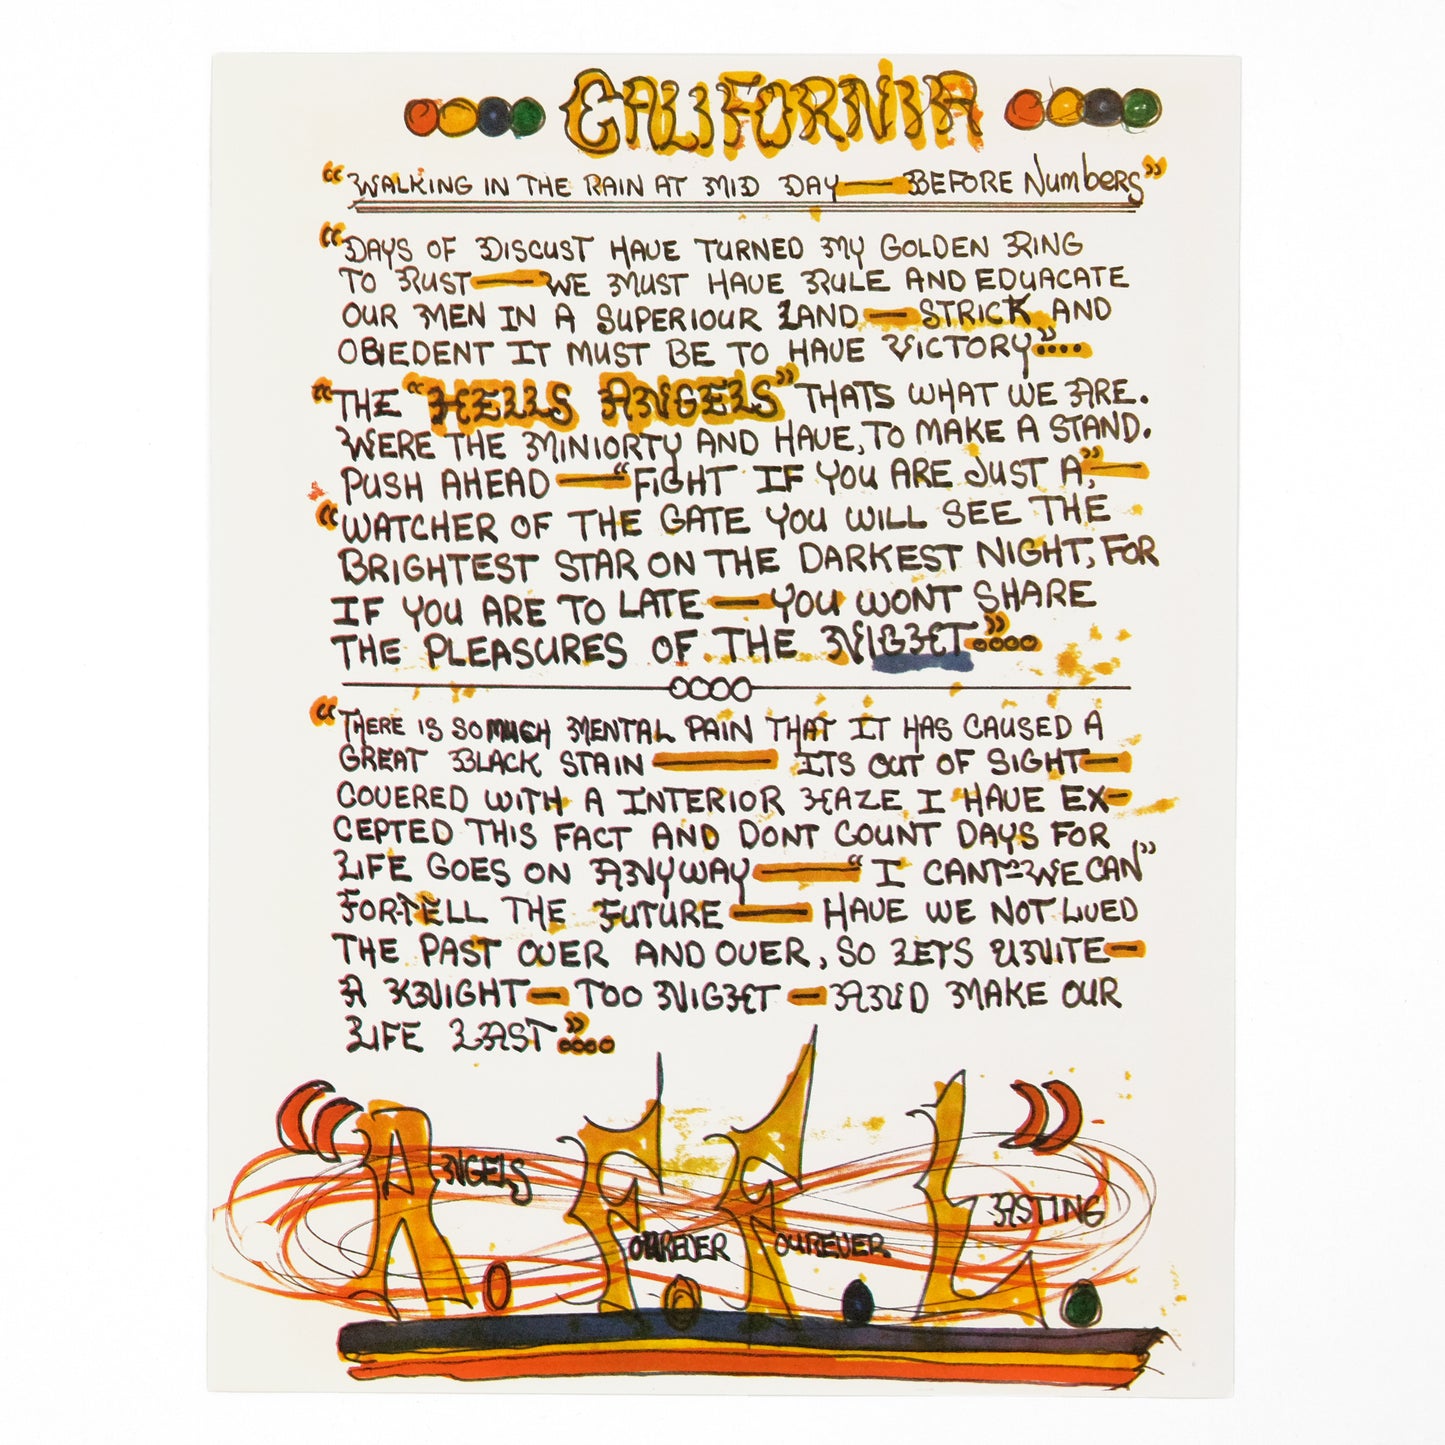 CALIFORNIA
“WALKING IN THE RAIN AT MID DAY — BEFORE NumbERS”
“DAYS OF DISCUST HAVE TURNED MY GOLDEN RING
TO RUST — WE MUST HAVE RULE AND EDUACATE
OUR MEN IN A SUPERIOUR LAND — STRICK AND
OBIEDENT IT MUST BE TO HAVE VICTORY”....
“THE “HELLS ANGELS” THATS WHAT WE ARE.
WERE THE MINIORTY AND HAVE, TO MAKE A STAND.
PUSH AHEAD — “FIGHT IF YOU ARE JUST A,” —
“WATCHER OF THE GATE YOU WILL SEE THE
BRIGHTEST STAR ON THE DARKEST NIGHT, FOR
IF YOU ARE TO LATE — YOU WONT SHARE
THE PLEASURES OF THE NIGHT”....
“THERE IS SO MUCH MENTAL PAIN THAT IT HAS CAUSED A
GREAT BLACK STAIN — ITS OUT OF SIGHT —
COVERED WITH A INTERIOR HAZE I HAVE EX-
CEPTED THIS FACT AND DONT COUNT DAYS FOR
LIFE GOES ON ANYWAY — “I CANT - WE CAN”
FOR-TELL THE FUTURE — HAVE WE NOT LIVED
THE PAST OVER AND OVER, SO LETS UNITE —
A KNIGHT — TOO NIGHT — AND MAKE OUR
LIFE LAST”....
“ANGELS. FOUREVER. FOUREVER. LASTING.”